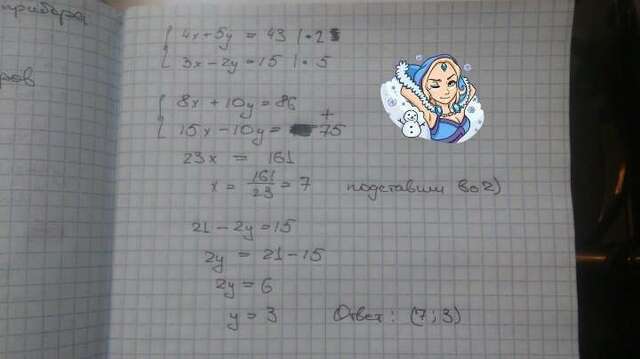 прибора
ров
4x + 5y = 43 | • 2
3x - 2y = 15 | • 5
8x + 10y = 86
+
15x - 10y = 75
23x = 161
x = 161/23 = 7 подставим во 2)
21 - 2y = 15
2y = 21 - 15
2y = 6
y = 3 Ответ: (7; 3)